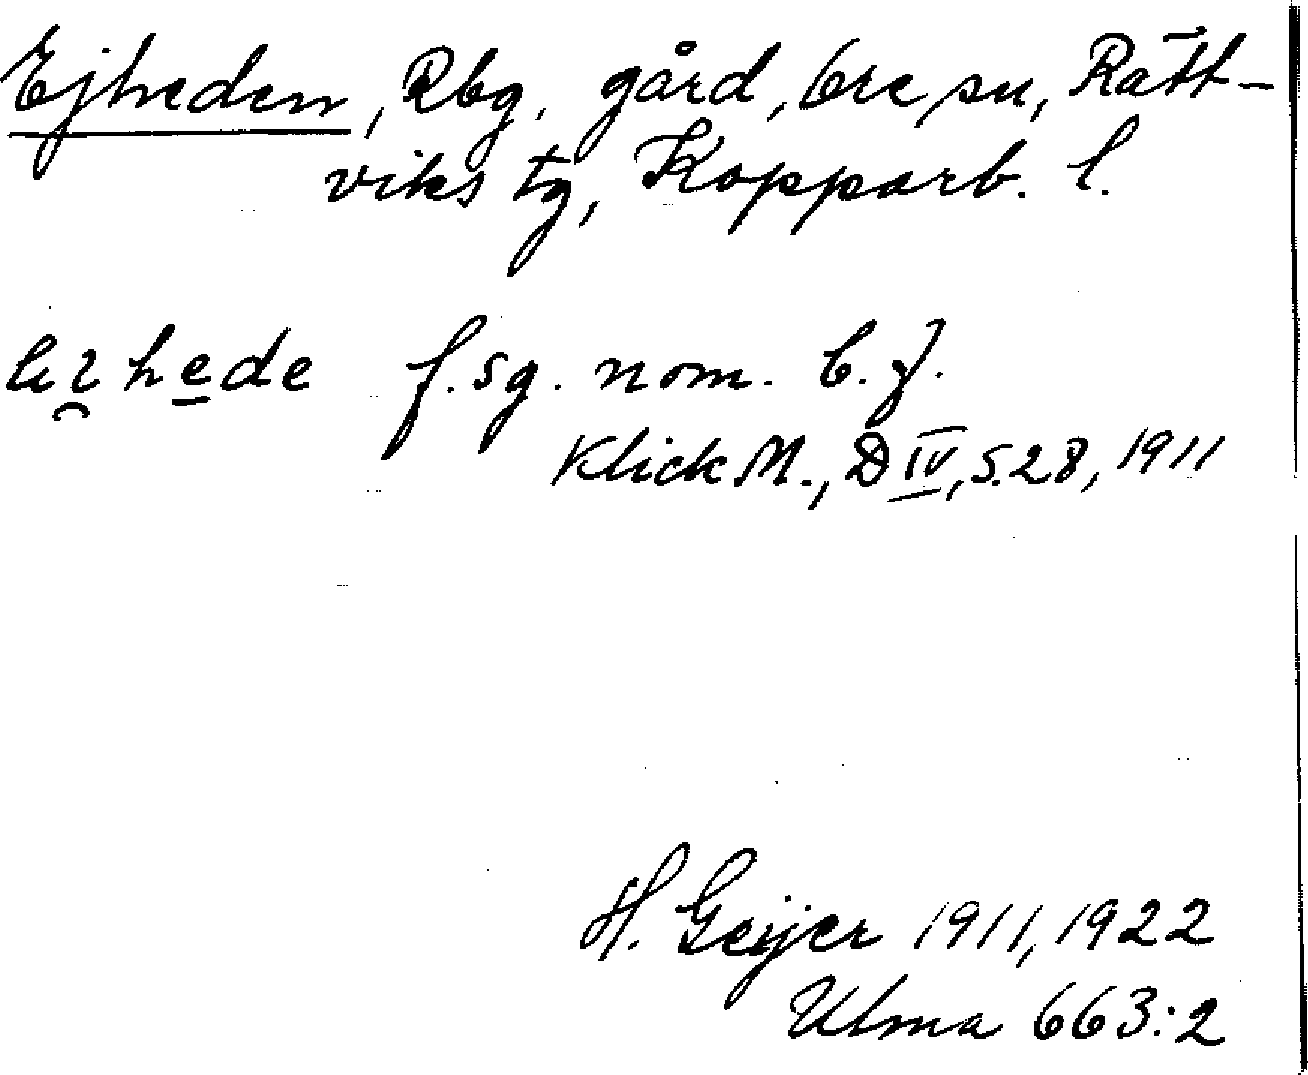 Ejheden, Rbg, gård, Ore sn, Rätt-
viks tg, Kopparb. l.
f. sg. nom. b. f.
Klick M., D IV, s. 28, 1911
H. Geijer 1911, 1922
Ulma 663:2